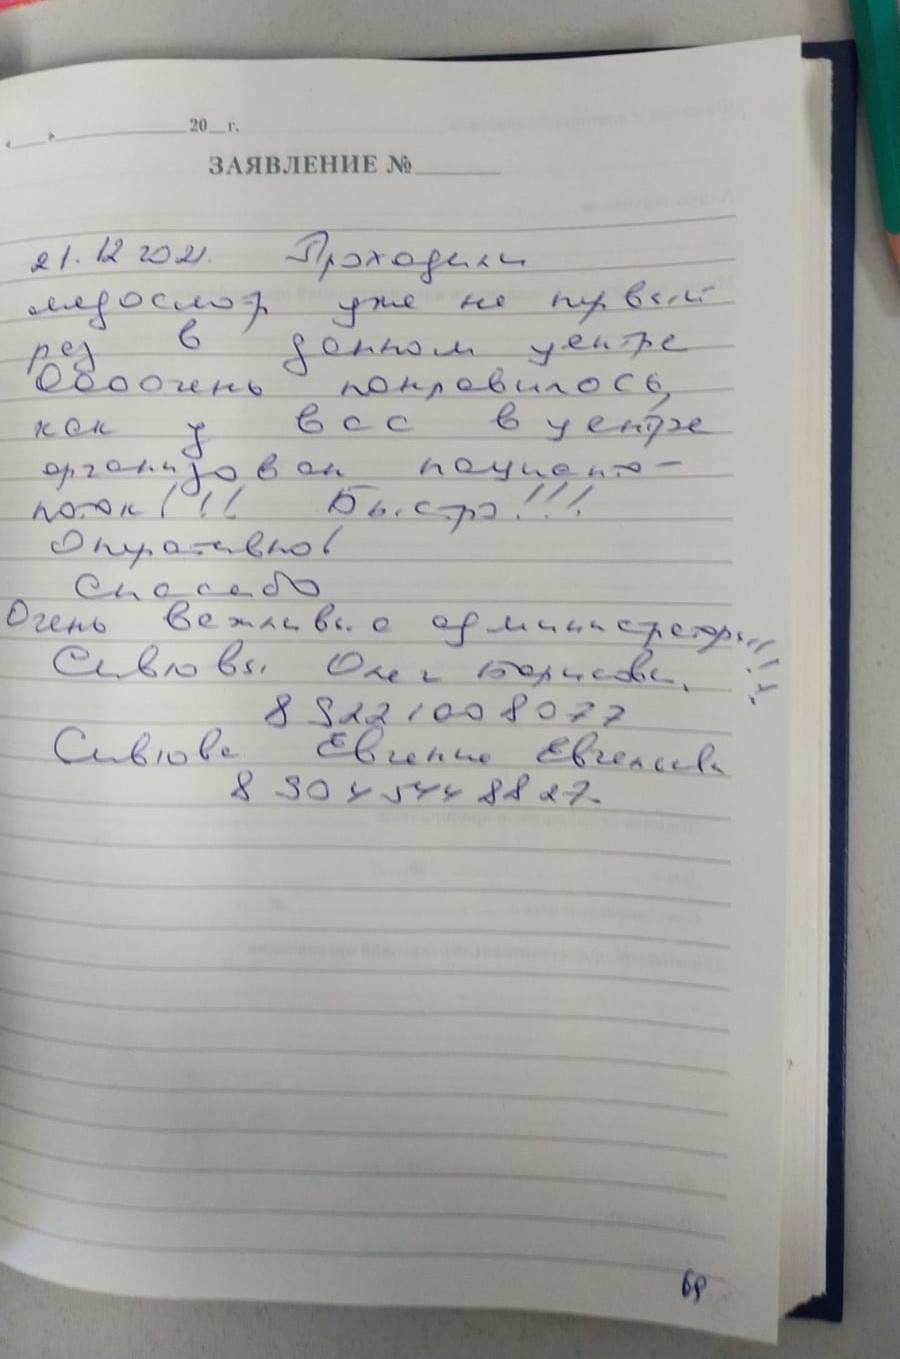 « » 20 г.
ЗАЯВЛЕНИЕ №
21.12 2021. Проходили
медосмотр уже не первый
раз в данном центре
Оооочень понравилось,
как у вас в центре
организован пациенто-
поток!!! Быстро!!!
Оперативно!
Спасибо
Очень вежливые администраторы!!!!
Сивковы Олег Борисович,
8 922 1008077
Евгения Евгеньевна
8 904 544 8827.
69